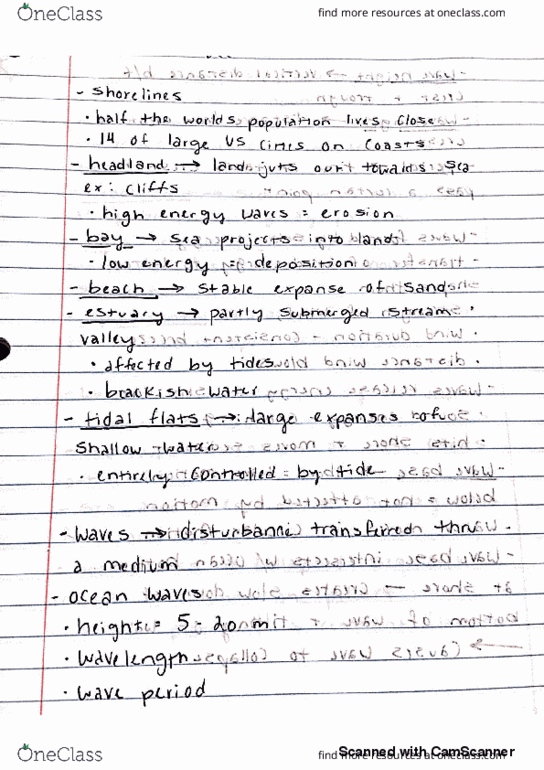 OneClass
find more resources at oneclass.com
- shorelines
• half the worlds population lives close
• 14 of large US cities on coasts
- headland → land juts out towards sea
ex: cliffs
• high energy waves = erosion
- bay → sea projects into land
• low energy = deposition
- beach → stable expanse of sand
- estuary → partly submerged stream
valley
• affected by tides
• brackish water
- tidal flats → large expanses of
shallow water
• entirely controlled by tide
- waves → transferred thru
a medium
- ocean waves
• height = 5
• wavelength
• wave period
OneClass
find more resources at oneclass.com
Scanned with CamScanner